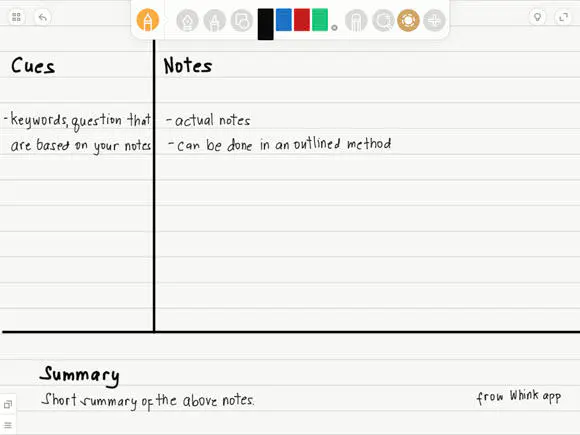 Cues
Notes
-keywords, question that
are based on your notes
- actual notes
- can be done in an outlined method
Summary
Short summary of the above notes.
from Whink app